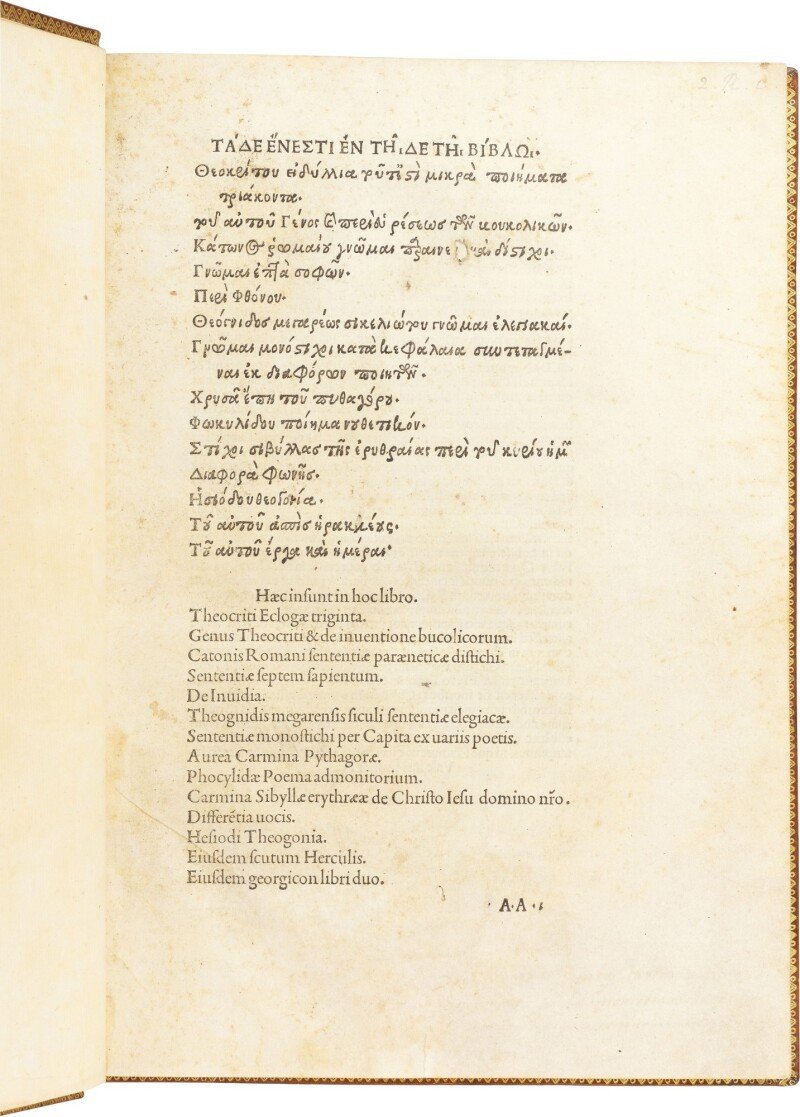 ΤΆΔΕ ΈΝΕΣΤΙ ἘΝ ΤΗ͂ι ΔΕ ΤΗ͂ι ΒΊΒΛΩι.
Θεοκρίτου εἰδύλλια τουτέστι μικρὰ ποιήματα
τριάκοντα.
τοῦ αὐτοῦ Γένος καὶ περὶ εὑρέσεως τῶν βουκολικῶν.
Κάτωνος ῥωμαίου γνῶμαι δίστιχοι.
Γνῶμαι ἑπτὰ σοφῶν.
Περὶ Φθόνου.
Θεόγνιδος μεγαρέως σικελιώτου γνῶμαι ἐλεγιακαί.
Γνῶμαι μονόστιχοι κατὰ κεφάλαια συντεταγμέ-
ναι ἐκ διαφόρων ποιητῶν.
Χρυσᾶ ἔπη τοῦ πυθαγόρου.
Φωκυλίδου ποίημα νουθετικόν.
Στίχοι σιβύλλας τῆς ἐρυθραίας περὶ τοῦ κυρίου ἡμῶν
Διαφορὰ φωνῆς.
Ἡσιόδου θεογονία.
Τοῦ αὐτοῦ ἀσπὶς ἡρακλέους.
Τοῦ αὐτοῦ ἔργα καὶ ἡμέραι.
Hæc inſunt in hoc libro.
Theocriti Eclogæ triginta.
Genus Theocriti & de inuentione bucolicorum.
Catonis Romani ſententiæ paræneticæ diſtichi.
Sententiæ ſeptem ſapientum.
De Inuidia.
Theognidis megarenſis ſiculi ſententiæ elegiacæ.
Sententiæ monoſtichi per Capita ex uariis poetis.
Aurea Carmina Pythagoræ.
Phocylidæ Poema admonitorium.
Carmina Sibyllæ erythrææ de Chriſto Ieſu domino nr̃o.
Differẽtia uocis.
Heſiodi Theogonia.
Eiuſdem ſcutum Herculis.
Eiuſdem georgicon libri duo.
A.A.i